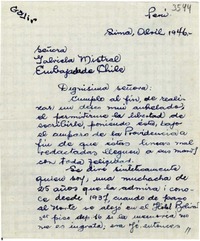 Perú.
3544
Lima, Abril, 1946.-
Señora
Gabriela Mistral
Embajada de Chile
Dignísima señora:
Cumplo al fin, de realizar
un deseo muy anhelado
al permitirme la libertad de
escribirle, poniendo ésta, bajo
el amparo de la Providencia a
fin de que estas líneas mal
redactadas lleguen a sus manos
con toda felicidad.
Le diré sintéticamente
quien soy, una muchacha de
25 años que la admira y conoce
desde 1937, cuando de paso
al norte se alojó en el "Hotel Bolívar"
si la memoria no
me es ingrata, era yo, entonces